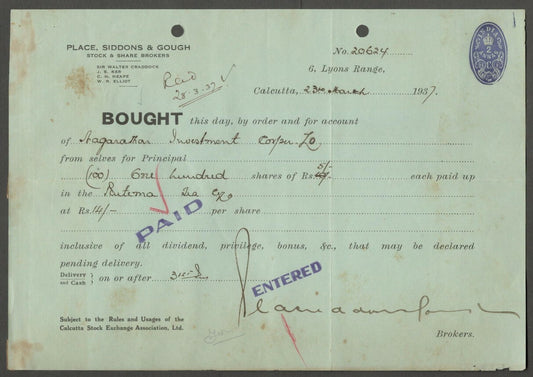 PLACE, SIDDONS & GOUGH
STOCK & SHARE BROKERS
SIR WALTER CRADDOCK
J. S. KER
C. N. REAPE
W. R. ELLIOT
No. 20624
6, Lyons Range,
Calcutta, 23rd March 1937.
Paid
28.3.37
BOUGHT this day, by order and for account
of Nagarathar Investment Corpn. Lo
from selves for Principal
(100) One hundred shares of Rs. 5/- each paid up
in the Rutema Tea Co
at Rs. 14/- per share
PAID
inclusive of all dividend, privilege, bonus, &c., that may be declared
pending delivery.
Delivery and Cash } on or after
ENTERED
Subject to the Rules and Usages of the
Calcutta Stock Exchange Association, Ltd.
Brokers.